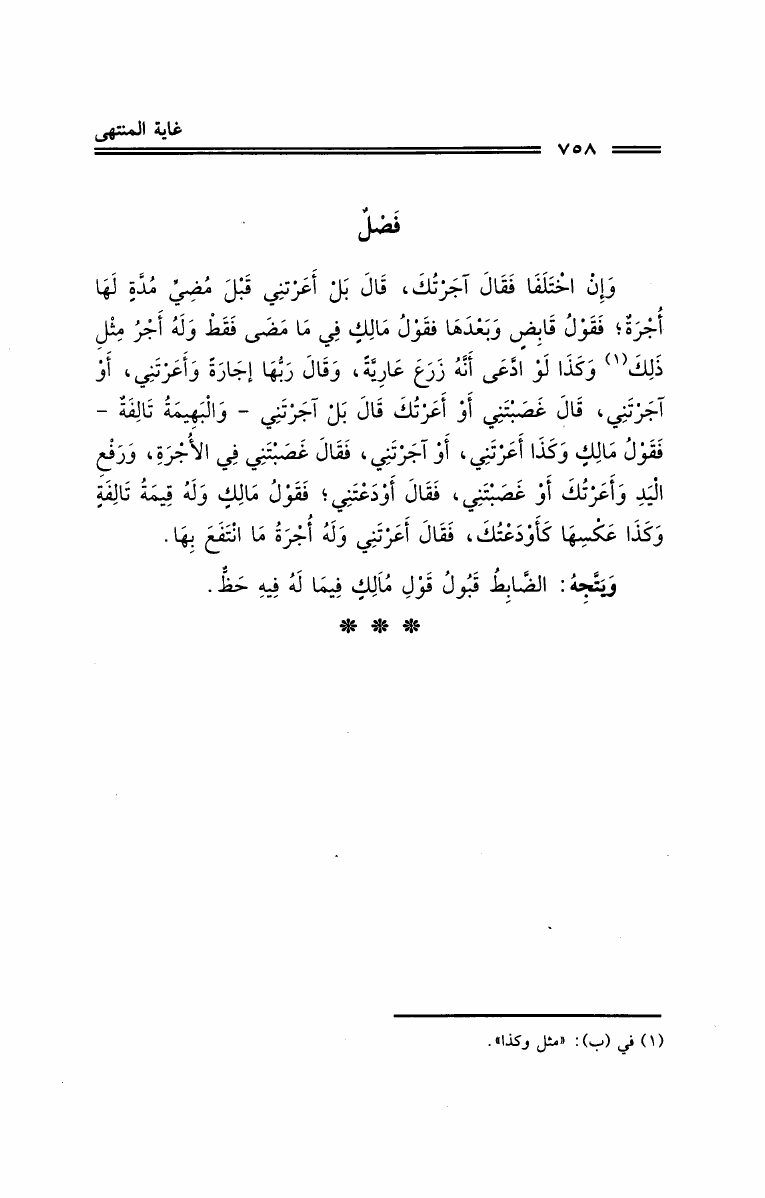 غاية المنتهى
٧٥٨
فَصْلٌ
وَإِنْ اخْتَلَفَا فَقَالَ آجَرْتُكَ، قَالَ بَلْ أَعَرْتنِي قَبْلَ مُضِيِّ مُدَّةٍ لَهَا
أُجْرَةٌ؛ فَقَوْلُ قَابِضٍ وَبَعْدَهَا فقَوْلُ مَالِكٍ فِي مَا مَضَى فَقَطْ وَلَهُ أَجْرُ مِثْلِ
ذَلِكَ(١) وَكَذَا لَوْ ادَّعَى أَنَّهُ زَرَعَ عَارِيَّةً، وَقَالَ رَبُّهَا إجَارَةً وَأَعَرْتَنِي، أَوْ
آجَرْتَنِي، قَالَ غَصَبْتَنِي أَوْ أَعَرْتُكَ قَالَ بَلْ آجَرْتَنِي - وَالْبَهِيمَةُ تَالِفَةٌ -
فَقَوْلُ مَالِكٍ وَكَذَا أَعَرْتَنِي، أَوْ آجَرْتَنِي، فَقَالَ غَصَبْتَنِي فِي الأُجْرَةِ، وَرَفْعِ
الْيَدِ وَأَعَرْتُكَ أَوْ غَصَبْتَنِي، فَقَالَ أَوْدَعْتَنِي؛ فَقَوْلُ مَالِكٍ وَلَهُ قِيمَةُ تَالِفَةٍ
وَكَذَا عَكْسِهَا كَأَوْدَعْتُكَ، فَقَالَ أَعَرْتَنِي وَلَهُ أُجْرَةُ مَا انْتَفَعَ بِهَا.
وَيَتَّجِهُ: الضَّابِطُ قَبُولُ قَوْلِ مُاَلِكٍ فِيمَا لَهُ فِيهِ حَظٌّ.
* * *
(١) في (ب): «مثل وكذا».